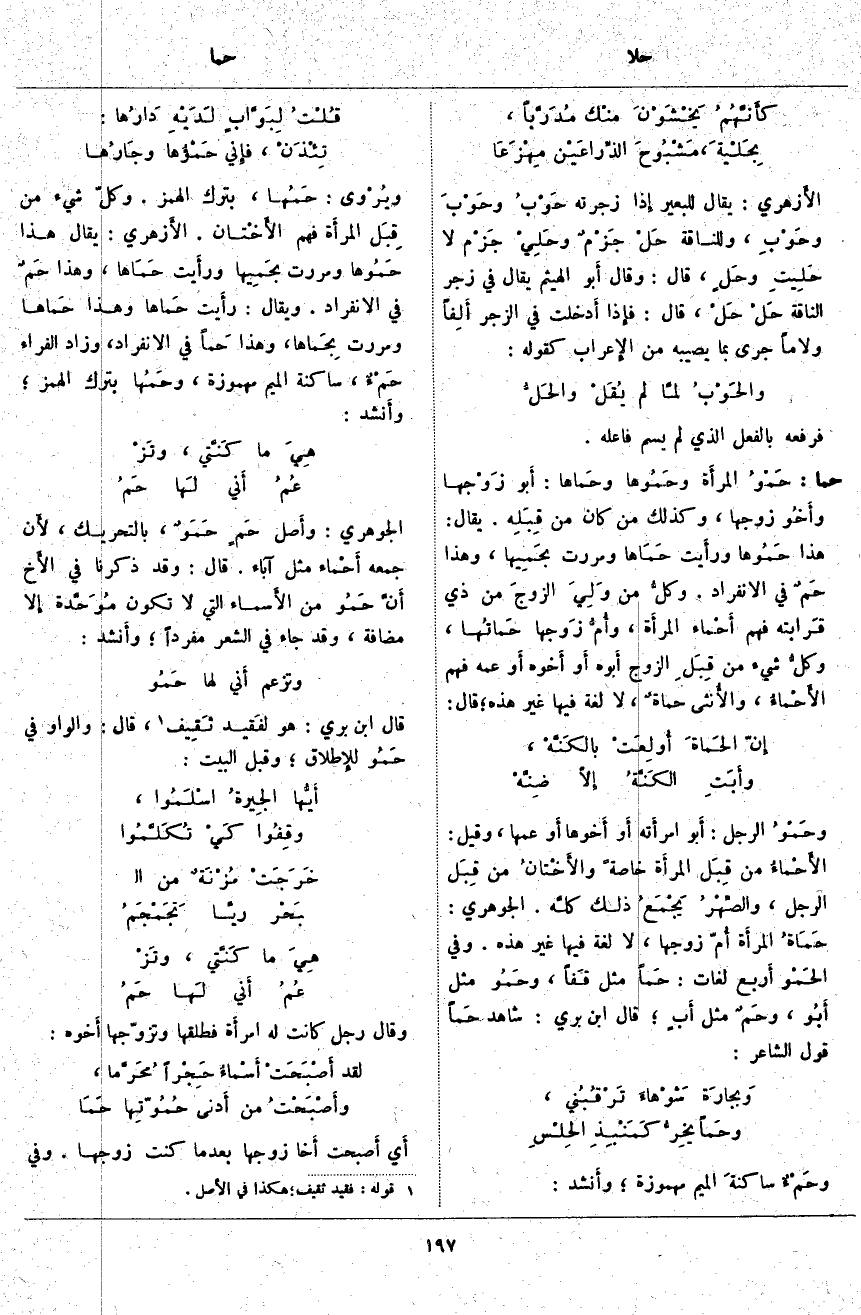 حلا
حما
كَأَنَّهُمُ يَخْشَوْنَ مِنْكَ مُدَرَّباً ،
بِحَلْيَةَ، مَشْبُوحَ الذِّراعَيْنِ مِهْزَعَا
الأَزهري : يقال للبعير إذا زجرته حَوْبُ وحَوْبَ
وحَوْبِ ، وللناقة حَلْ جَزْمٌ وحَلِيْ جَزْم لا
حَلِيتِ وحَلٍ ، قال : وقال أبو الهيثم يقال في زجر
الناقة حَلْ حَلْ ، قال : فإذا أدخلت في الزجر أَلِفاً
ولاماً جرى بما يصيبه من الإعراب كقوله :
والحَوْبُ لمَّا لم يُقَلْ والحَلُّ
فرفعه بالفعل الذي لم يسم فاعله .
حما : حَمْوُ المرأَة وحَمُوها وحَماها : أبو زَوْجها
وأَخُو زوجها ، وكذلك من كان من قِبَلِه . يقال:
هذا حَمُوها ورأيت حَمَاها ومررت بحَمِيها ، وهذا
حَمٌ في الانفراد . وكلُّ من وَلِيَ الزوجَ من ذي
قَرابته فهم أَحْماء المرأَة ، وأُمُّ زَوجها حَماتُها ،
وكلُّ شيء من قِبَلِ الزوج أبوه أو أخوه أو عمه فهم
الأَحْماءُ ، والأُنثى حماةٌ ، لا لغة فيها غير هذه؛ قال:
إنّ الحَماةَ أُولِعَتْ بالكَنَّهْ ،
وأَبَتِ الكَنَّةُ إلاَّ ضِنَّهْ
وحَمْوُ الرجل : أبو امرأته أو أخوها أو عمها ، وقيل:
الأَحْماءُ من قِبَل المرأة خاصةً والأَخْتانُ من قِبَل
الرجل ، والصِّهْرُ يَجْمَعُ ذلك كلَّه . الجوهري :
حَمَاةُ المرأة أُمّ زوجها ، لا لغة فيها غير هذه . وفي
الحَمْو أربع لغات : حَماً مثل قَفاً ، وحَمُو مثل
أَبُو ، وحَمٌ مثل أبٍ ؛ قال ابن بري : شاهد حَماً
قول الشاعر :
وَبِجارَة شَوْهاءَ تَرْقُبُني ،
وحَماً يخِرُّ كَمَنْبِذِ الحِلْسِ
وحَمْءٌ ساكنةَ الميم مهموزة ؛ وأنشد :
قُلْتُ لِبَوَّابٍ لَدَيْهِ دَارُها :
تِئْذَنْ ، فإني حَمْؤُها وجَارُها
ويُرْوى : حَمُها ، بترك الهمز . وكلّ شيء من
قِبَل المرأة فهم الأَخْتان . الأَزهري : يقال هذا
حَمُوها ومررت بحَمِيها ورأيت حَمَاها ، وهذا حَمٌ
في الانفراد . ويقال : رأيت حَماها وهذا حَماها
ومررت بِحَماها، وهذا حَماً في الانفراد، وزاد الفراء
حَمْءٌ ، ساكنة الميم مهموزة ، وحَمُها بترك الهمز ؛
وأنشد :
هِيَ ما كَنَّتي ، وتَزْ
عُمُ أَني لَها حَمُ
الجوهري : وأصل حَمٍ حَمَوٌ ، بالتحريك ، لأن
جمعه أَحْماء مثل آباء . قال : وقد ذكرنا في الأخ
أنَّ حَمُو من الأسماء التي لا تكون مُوَحَّدة إلا
مضافة ، وقد جاء في الشعر مفرداً ؛ وأنشد :
وتزعم أني لها حَمُو
قال ابن بري : هو لفَقيد ثَقِيف١ ، قال : والواو في
حَمُو للإطلاق ؛ وقبل البيت :
أَيُّها الجِيرةُ اسْلَمُوا ،
وقِفُوا كَيْ تُكَلَّمُوا
خَرَجَتْ مُزْنَةٌ من ال
بَحْر ريَّا تَجَمْجَمُ
هِيَ ما كَنَّتي ، وتَزْ
عُمُ أَني لَها حَمُ
وقال رجل كانت له امرأة فطلقها وتزوّجها أخوه :
لقد أَصْبَحَتْ أَسْماءُ حَجْراً مُحَرَّما ،
وأَصْبَحْتُ من أدنى حُمُوّتِها حَمَا
أي أصبحت أخا زوجها بعدما كنت زوجها . وفي
١ قوله : فقيد ثقيف؛ هكذا في الأصل .
١٩٧